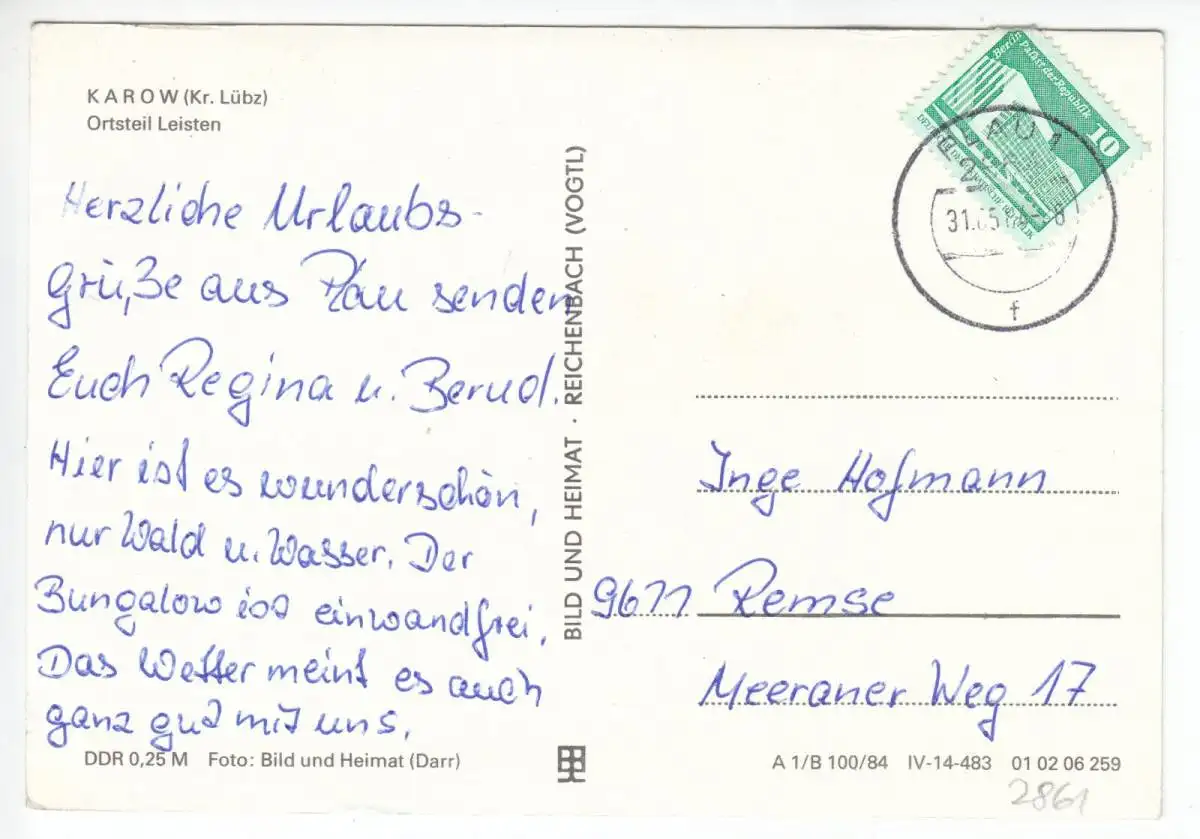 KAROW (Kr. Lübz)
Ortsteil Leisten
Herzliche Urlaubs-
grüße aus Plau senden
Euch Regina u. Bernd.
Hier ist es wunderschön,
nur Wald u. Wasser. Der
Bungalow ist einwandfrei.
Das Wetter meint es auch
ganz gut mit uns.
DDR 0,25 M Foto: Bild und Heimat (Darr)
BILD UND HEIMAT · REICHENBACH (VOGTL)
Berlin
Palast der Republik
10
1
31.
f
Inge Hofmann
9611 Remse
Meeraner Weg 17
A 1/B 100/84 IV-14-483 01 02 06 259
2861